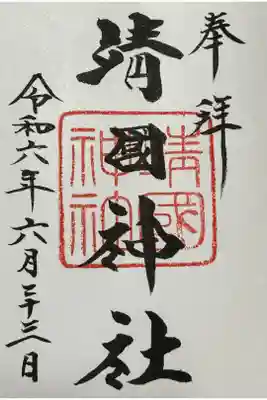 奉拝
靖國神社
靖國
神社
令和六年六月二十三日